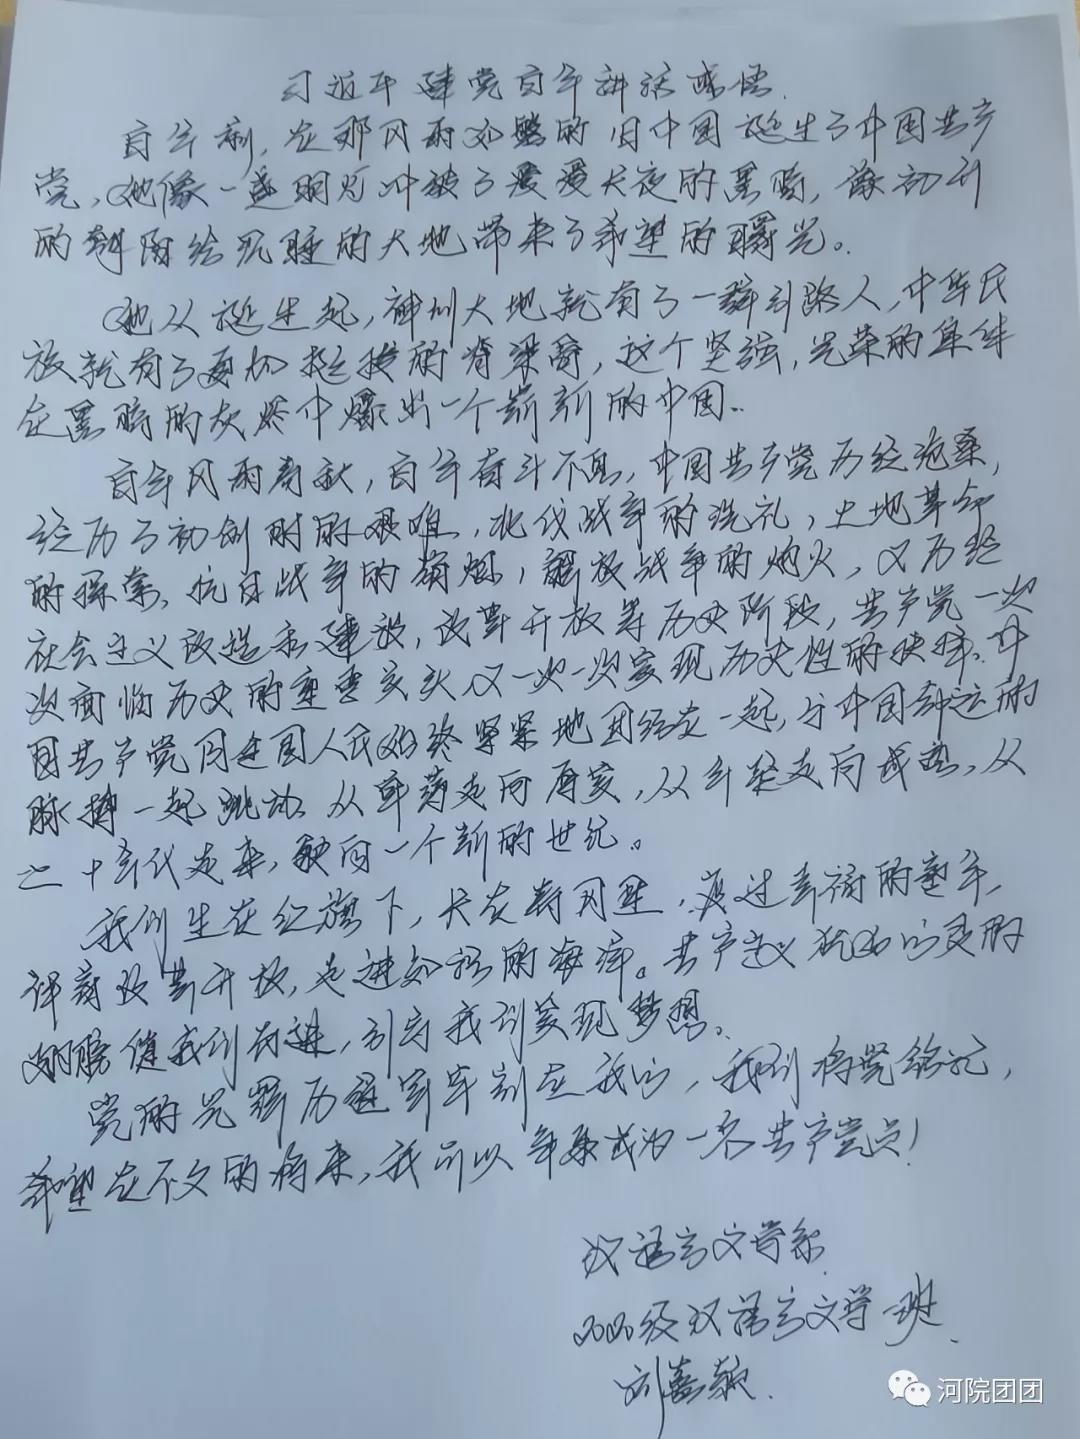 习近平建党百年讲话感悟.
百年前,在那风雨如磐的旧中国诞生了中国共产
党,她像一盏明灯冲破了漫漫长夜的黑暗,像初升
的朝阳给沉睡的大地带来了希望的曙光。
她从诞生起,神州大地就有了一群引路人,中华民
族就有了更加挺拔的脊梁骨,这个坚强,光荣的集体
在黑暗的灰烬中爆出一个崭新的中国.
百年风雨春秋,百年奋斗不息,中国共产党历经沧桑,
经历了初创时的艰难,北伐战争的洗礼,土地革命
的探索,抗日战争的硝烟,解放战争的炮火,又历经
社会主义改造和建设,改革开放等历史阶段,共产党一次
次面临历史的重要关头,又一次一次实现历史性的抉择.中
国共产党同全国人民始终紧紧地团结在一起,与中国命运的
脉搏一起跳动,从年轻走向成熟,从
二十年代走来,驶向一个新的世纪。
我们生在红旗下,长在春风里,度过幸福的童年,
伴着改革开放,走进知识的海洋。共产主义
翅膀使我们前进,引导我们实现梦想.
党的光辉历程牢牢刻在我心,我们将党铭记,
希望在不久的将来,我可以成为一名共产党员!
汉语言文学系
2020级汉语言文学一班.
刘喜颖.
河院团团